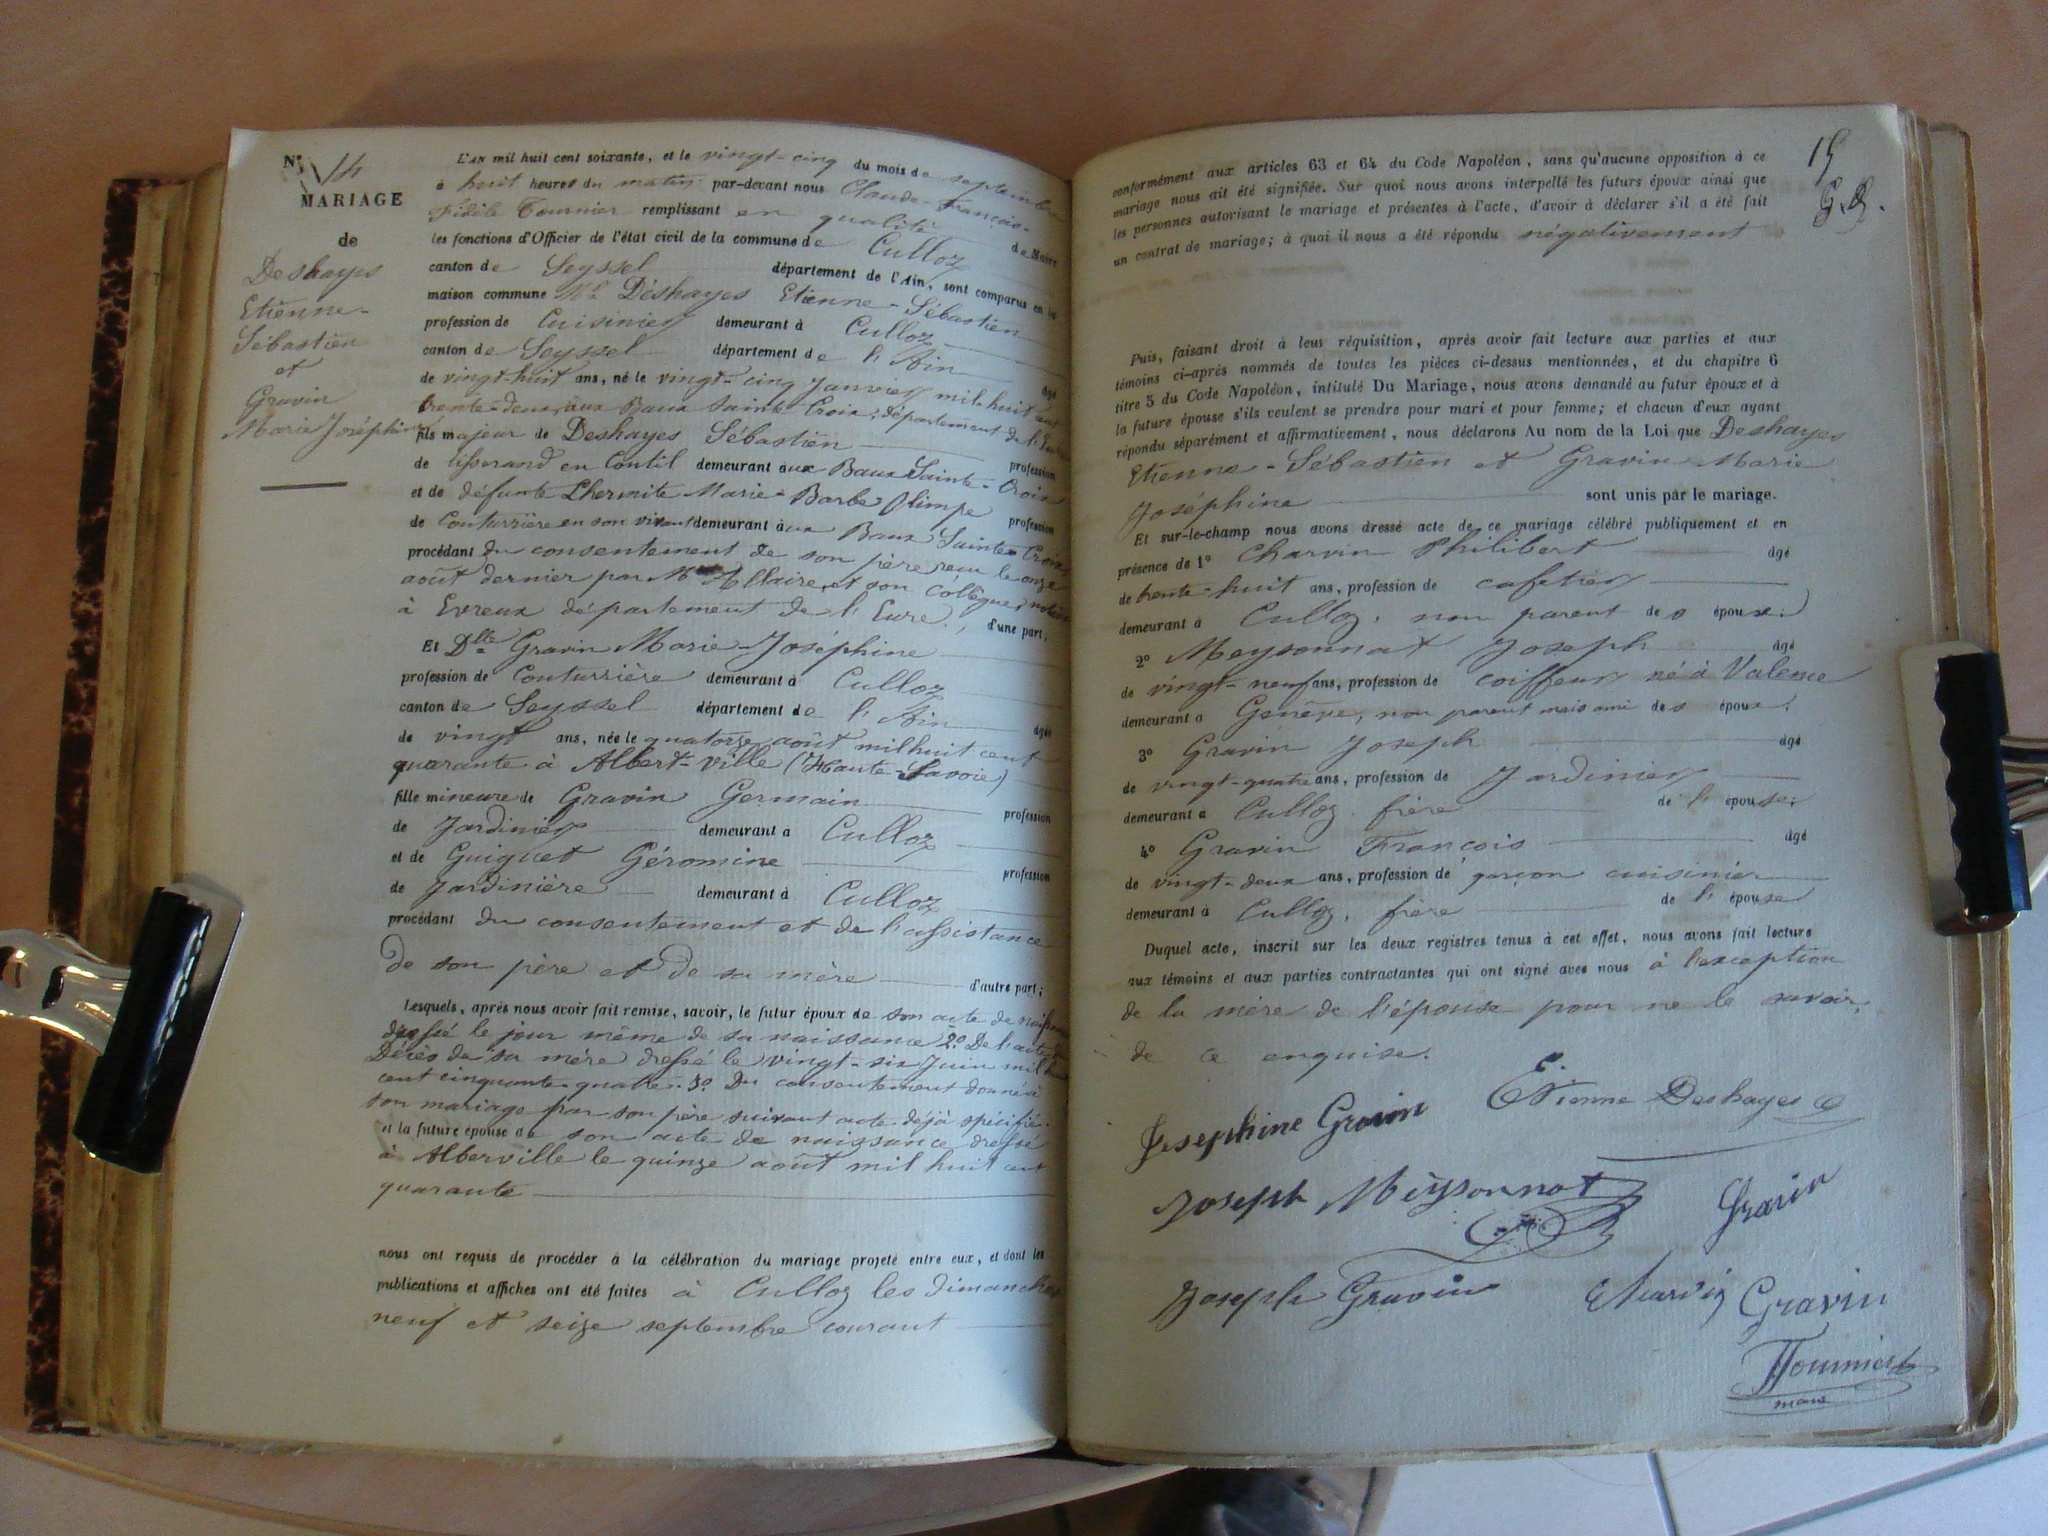 N° 14
MARIAGE
de
Deshayes
Etienne-
Sébastien
et
Gravin
Marie Joséphine
L'AN mil huit cent soixante, et le vingt-cinq du mois de septembre
à huit heures du matin par-devant nous Claude-François-
Fidèle Tournier remplissant en qualité de Maire
les fonctions d'Officier de l'état civil de la commune de Culloz
canton de Seyssel département de l'Ain, sont comparus en la
maison commune Mr Deshayes Etienne-Sébastien
profession de Cuisinier demeurant à Culloz
canton de Seyssel département de l'Ain âgé
de vingt-huit ans, né le vingt-cinq Janvier mil-huit cent
trente-deux, aux Baux Sainte Croix, département de l'Eure
fils majeur de Deshayes Sébastien profession
de tisserand en Coutil demeurant aux Baux Sainte-Croix
et de défunte Lhermite Marie-Barbe Olimpe profession
de Couturrière en son vivant demeurant aux Baux Sainte-Croix
procédant du consentement de son père reçu le onze
août dernier par Me Allaire et son collègue, notaires
à Evreux département de l'Eure, d'une part,
Et Dlle Gravin Marie-Joséphine
profession de Couturrière demeurant à Culloz
canton de Seyssel département de l'Ain âgée
de vingt ans, née le quatorze août mil huit cent
quarante à Albert-ville (Haute-Savoie)
fille mineure de Gravin Germain profession
de Jardinier demeurant à Culloz
et de Guiguet Géromine profession
de Jardinière demeurant à Culloz
procédant du consentement et de l'assistance
de son père et de sa mère d'autre part;
Lesquels, après nous avoir fait remise, savoir, le futur époux de son acte de naissance
dressé le jour même de sa naissance 2° De l'acte de
Décès de sa mère dressé le vingt-six Juin mil huit
cent cinquante-quatre. 3° Du consentement donné à
son mariage par son père suivant acte déjà spécifié.
et la future épouse de son acte de naissance dressé
à Alberville le quinze août mil huit cent
quarante
nous ont requis de procéder à la célébration du mariage projeté entre eux, et dont les
publications et affiches ont été faites à Culloz les Dimanches
neuf et seize septembre courant
15
conformément aux articles 63 et 64 du Code Napoléon, sans qu'aucune opposition à ce
mariage nous ait été signifiée. Sur quoi nous avons interpellé les futurs époux ainsi que
les personnes autorisant le mariage et présentes à l'acte, d'avoir à déclarer s'il a été fait
un contrat de mariage; à quoi il nous a été répondu négativement
Puis, faisant droit à leur réquisition, après avoir fait lecture aux parties et aux
témoins ci-après nommés de toutes les pièces ci-dessus mentionnées, et du chapitre 6
titre 5 du Code Napoléon, intitulé Du Mariage, nous avons demandé au futur époux et à
la future épouse s'ils veulent se prendre pour mari et pour femme; et chacun d'eux ayant
répondu séparément et affirmativement, nous déclarons Au nom de la Loi que Deshayes
Etienne-Sébastien et Gravin Marie
Joséphine sont unis par le mariage.
Et sur-le-champ nous avons dressé acte de ce mariage célébré publiquement et en
présence de 1° Charvin Philibert âgé
de trente-huit ans, profession de cafetier
demeurant à Culloz, non parent des époux;
2° Meysonnat Joseph âgé
de vingt-neuf ans, profession de coiffeur né à Valence
demeurant à Genève, non parent mais ami des époux;
3° Gravin Joseph âgé
de vingt-quatre ans, profession de Jardinier
demeurant à Culloz frère de l'épouse;
4° Gravin François âgé
de vingt-deux ans, profession de garçon cuisinier
demeurant à Culloz, frère de l'épouse
Duquel acte, inscrit sur les deux registres tenus à cet effet, nous avons fait lecture
aux témoins et aux parties contractantes qui ont signé avec nous à l'exception
de la mère de l'épouse pour ne le savoir,
de ce enquise.
Josephine Gravin Etienne Deshayes
Joseph Meysonnat Gravin
Joseph Gravin Charvin Gravin
Tournier
maire